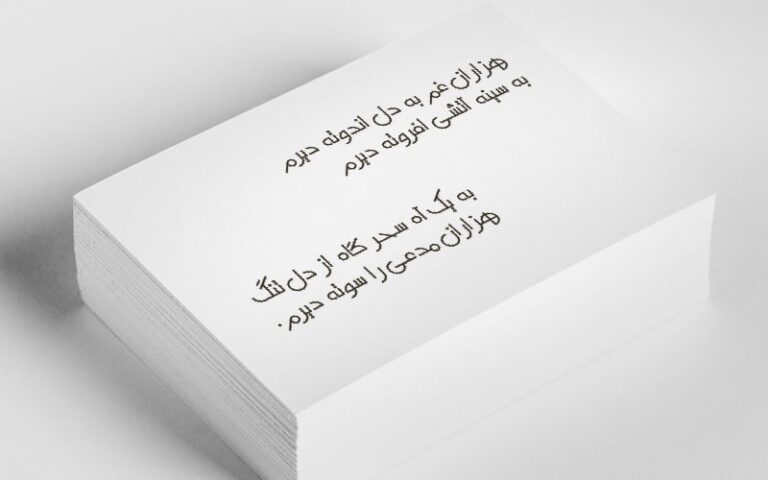 هزاران غم به دل اندوته دیرم
به سینه آتشی افروته دیرم
به یک آه سحر گاه از دل تنگ
هزاران مدعی را سوته دیرم.